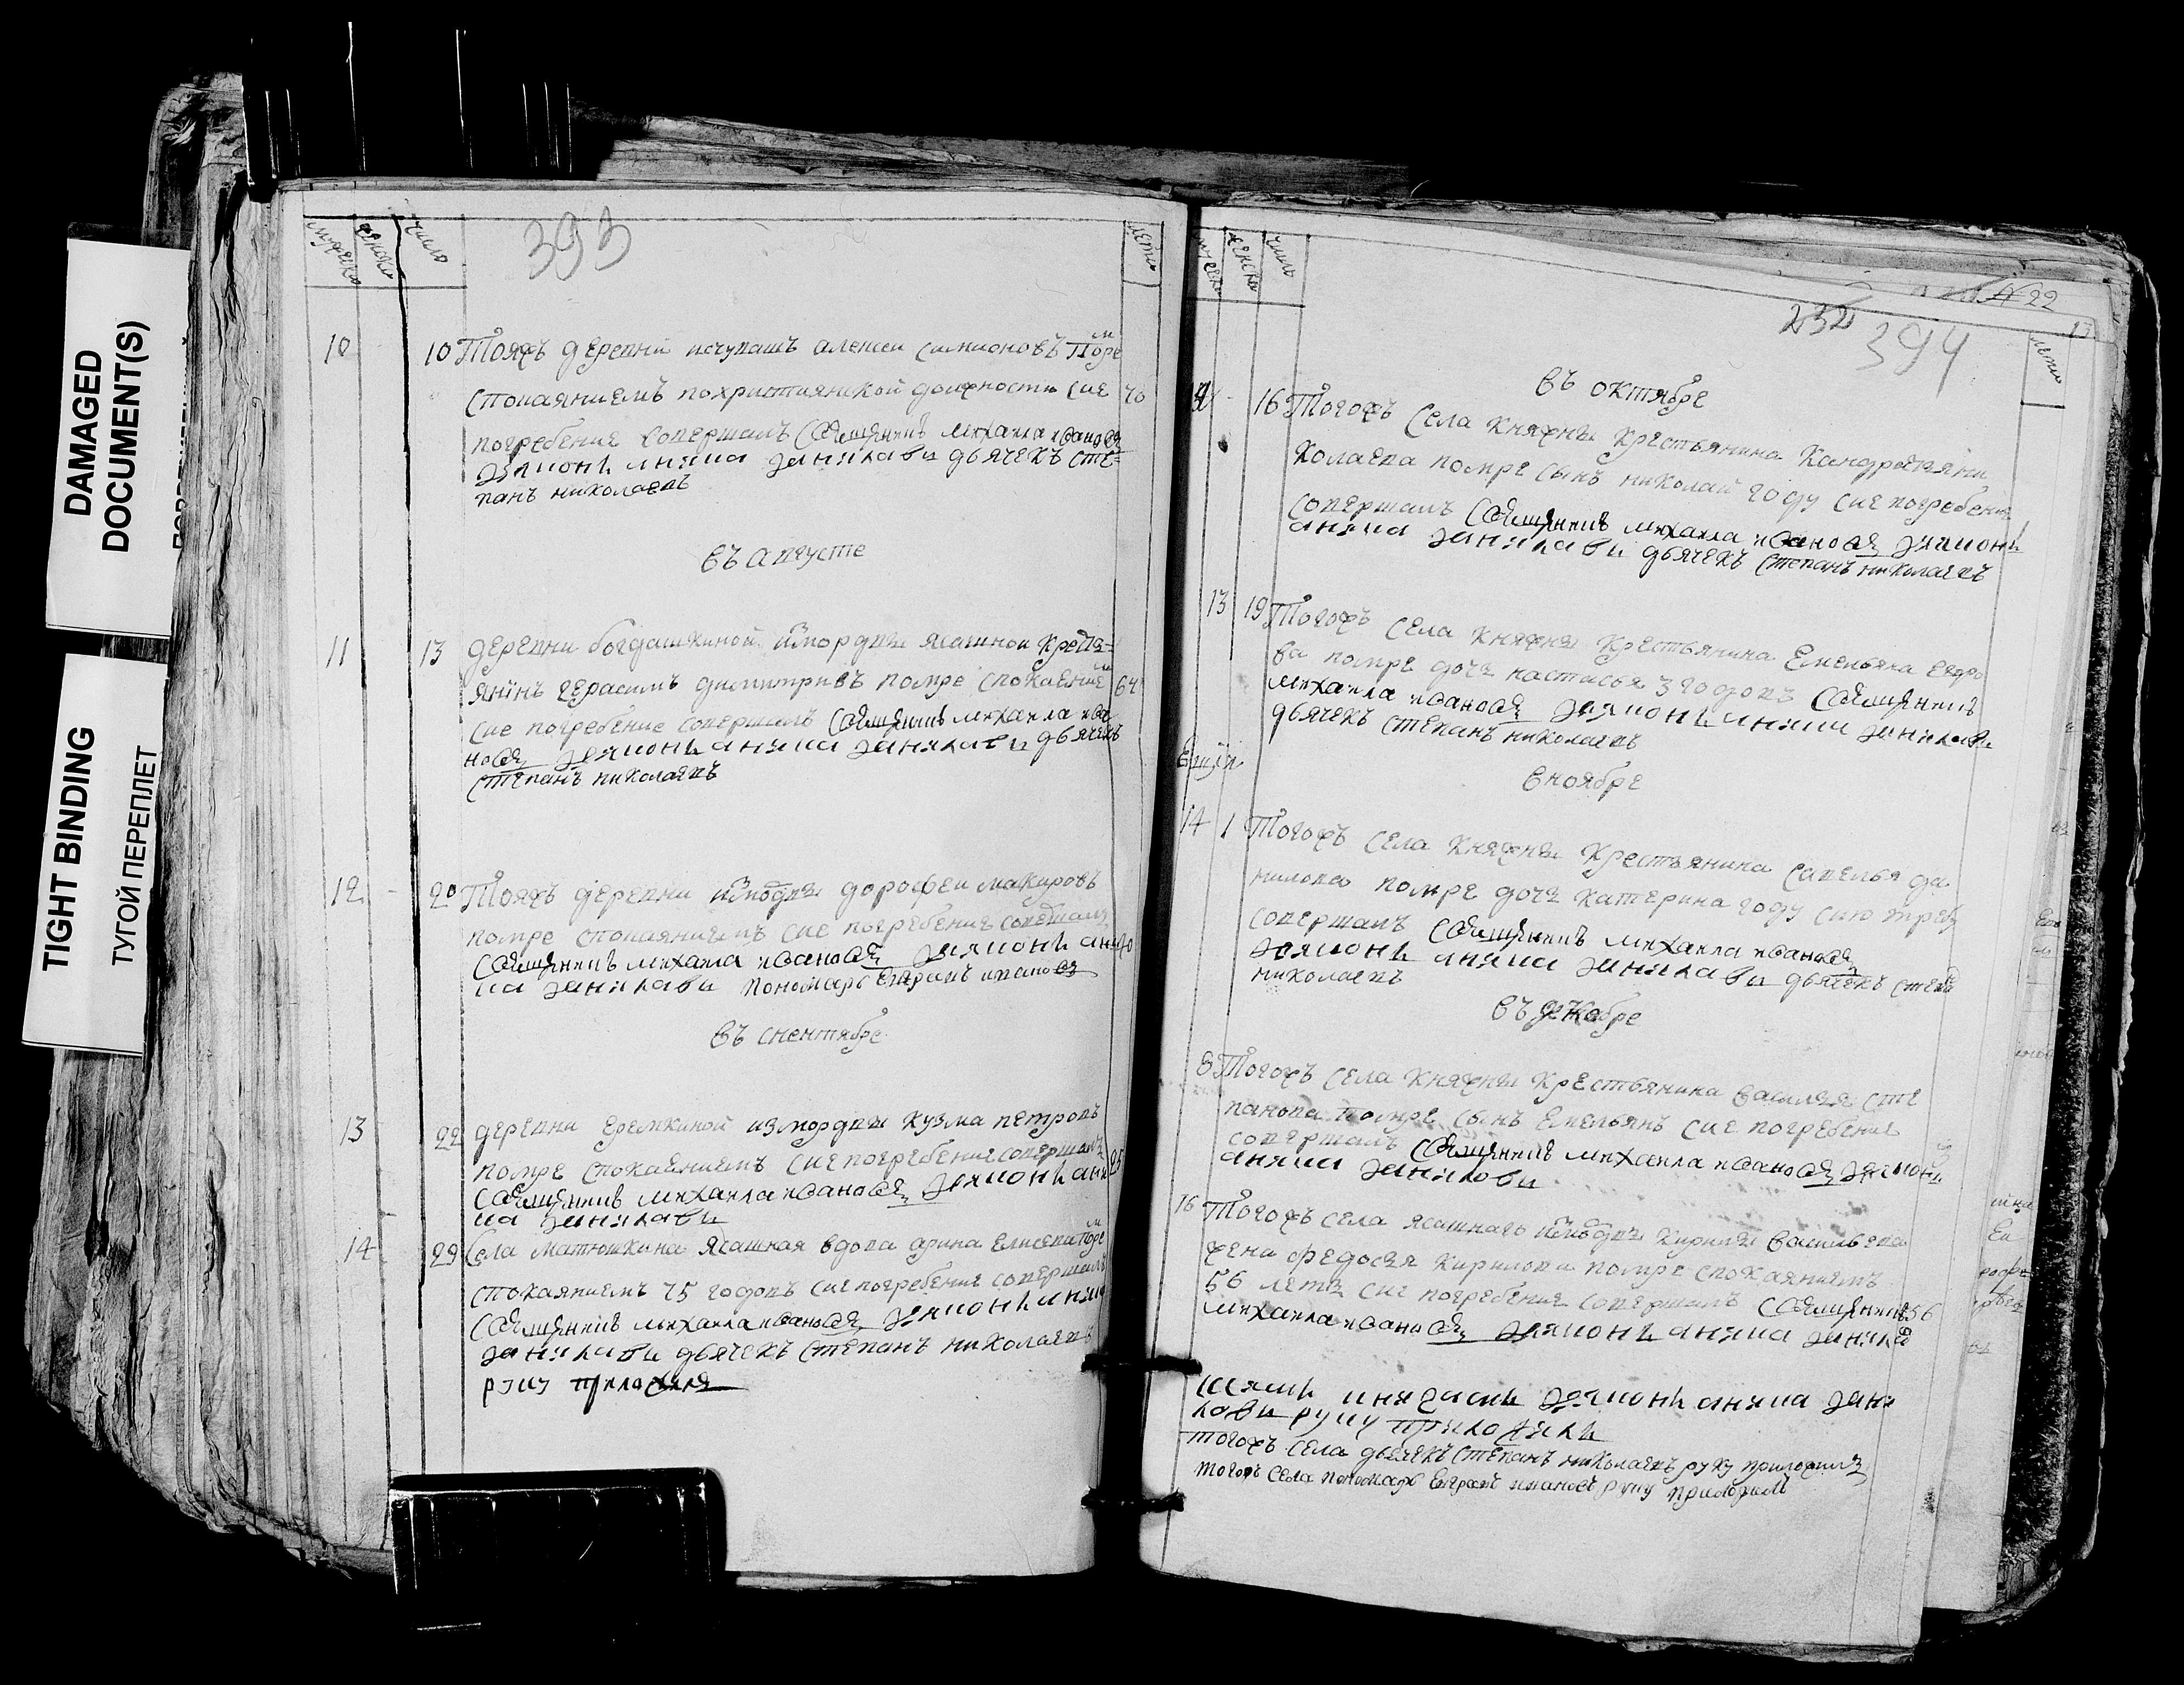 DAMAGED
DOCUMENT(S)
TIGHT BINDING
ТУГОЙ ПЕРЕПЛЕТ
мужеска
женска
число
393
лета
10 10 Тояжъ деревни исчувашъ алексеи симионовъ помре
спокаяниемъ похристиянской должности сие 70
погребение совершалъ священникъ михаила ивановъ
диаконъ аника данилавъ дьячекъ сте=
панъ николаевъ
въ августе
11 13 деревни богдашкиной измордвы ясашной крестья=
янинъ герасимъ димитривъ помре спокаение 64
сие погребение совершалъ священникъ михаила ива
новъ диаконъ аника данилавъ дьячекъ
степанъ николаевъ
12 20 Тояжъ деревни измордвы дорофеи макаровъ
помре спокаяниемъ сие погребение совершалъ
священникъ михаила ивановъ диаконъ ани 70
ка данилавъ пономарь ивановъ
въ сентябре
13 22 деревни еремкиной измордвы кузма петровъ
помре спокаениемъ сие погребение совершалъ 25
священникъ михаила ивановъ диаконъ ани
ка данилавъ
14 29 Села матюшкина ясашная вдова арина елисева помре
спокаяниемъ 75 годовъ сие погребение совершалъ
священникъ михаила ивановъ диаконъ аника
данилавъ дьячекъ степанъ николаевъ
руку приложил
мужеска
женска
число
22
232 394
лета
въ октябре
16 Тогожъ села княжны крестьянина кандратя ни
колаева помре сынъ николай году сие погребение
совершалъ священникъ михаила ивановъ диаконъ
аника данилавъ дьячекъ степанъ николаевъ
13 19 Тогожъ села княжны крестьянина емельяна
ва помре дочь настасья 3 годовъ священникъ
михаила ивановъ диаконъ аника данилавъ
дьячекъ степанъ николаевъ
вноябре
14 1 Тогожъ села княжны крестьянина савелья да
нилова помре дочь катерина году сию требу
совершалъ священникъ михаила ивановъ
диаконъ аника данилавъ дьячекъ степанъ
николаевъ
въ декабре
8 Тогожъ села княжны крестьянина василья сте
панова помре сынъ емельянъ сие погребение
совершалъ священникъ михаила ивановъ диаконъ
аника даниловъ
16 Тогожъ села ясашнаго измордвы кирилы васильева
жена федосья кирилова помре спокаяниемъ
56 летъ сие погребение совершалъ священникъ 56
михаила ивановъ диаконъ аника данила
диаконъ аника дани
лавъ руку приложилъ
тогожъ села дьячекъ степанъ николаевъ руку приложилъ
тогожъ села пономарь ивановъ руку приложилъ